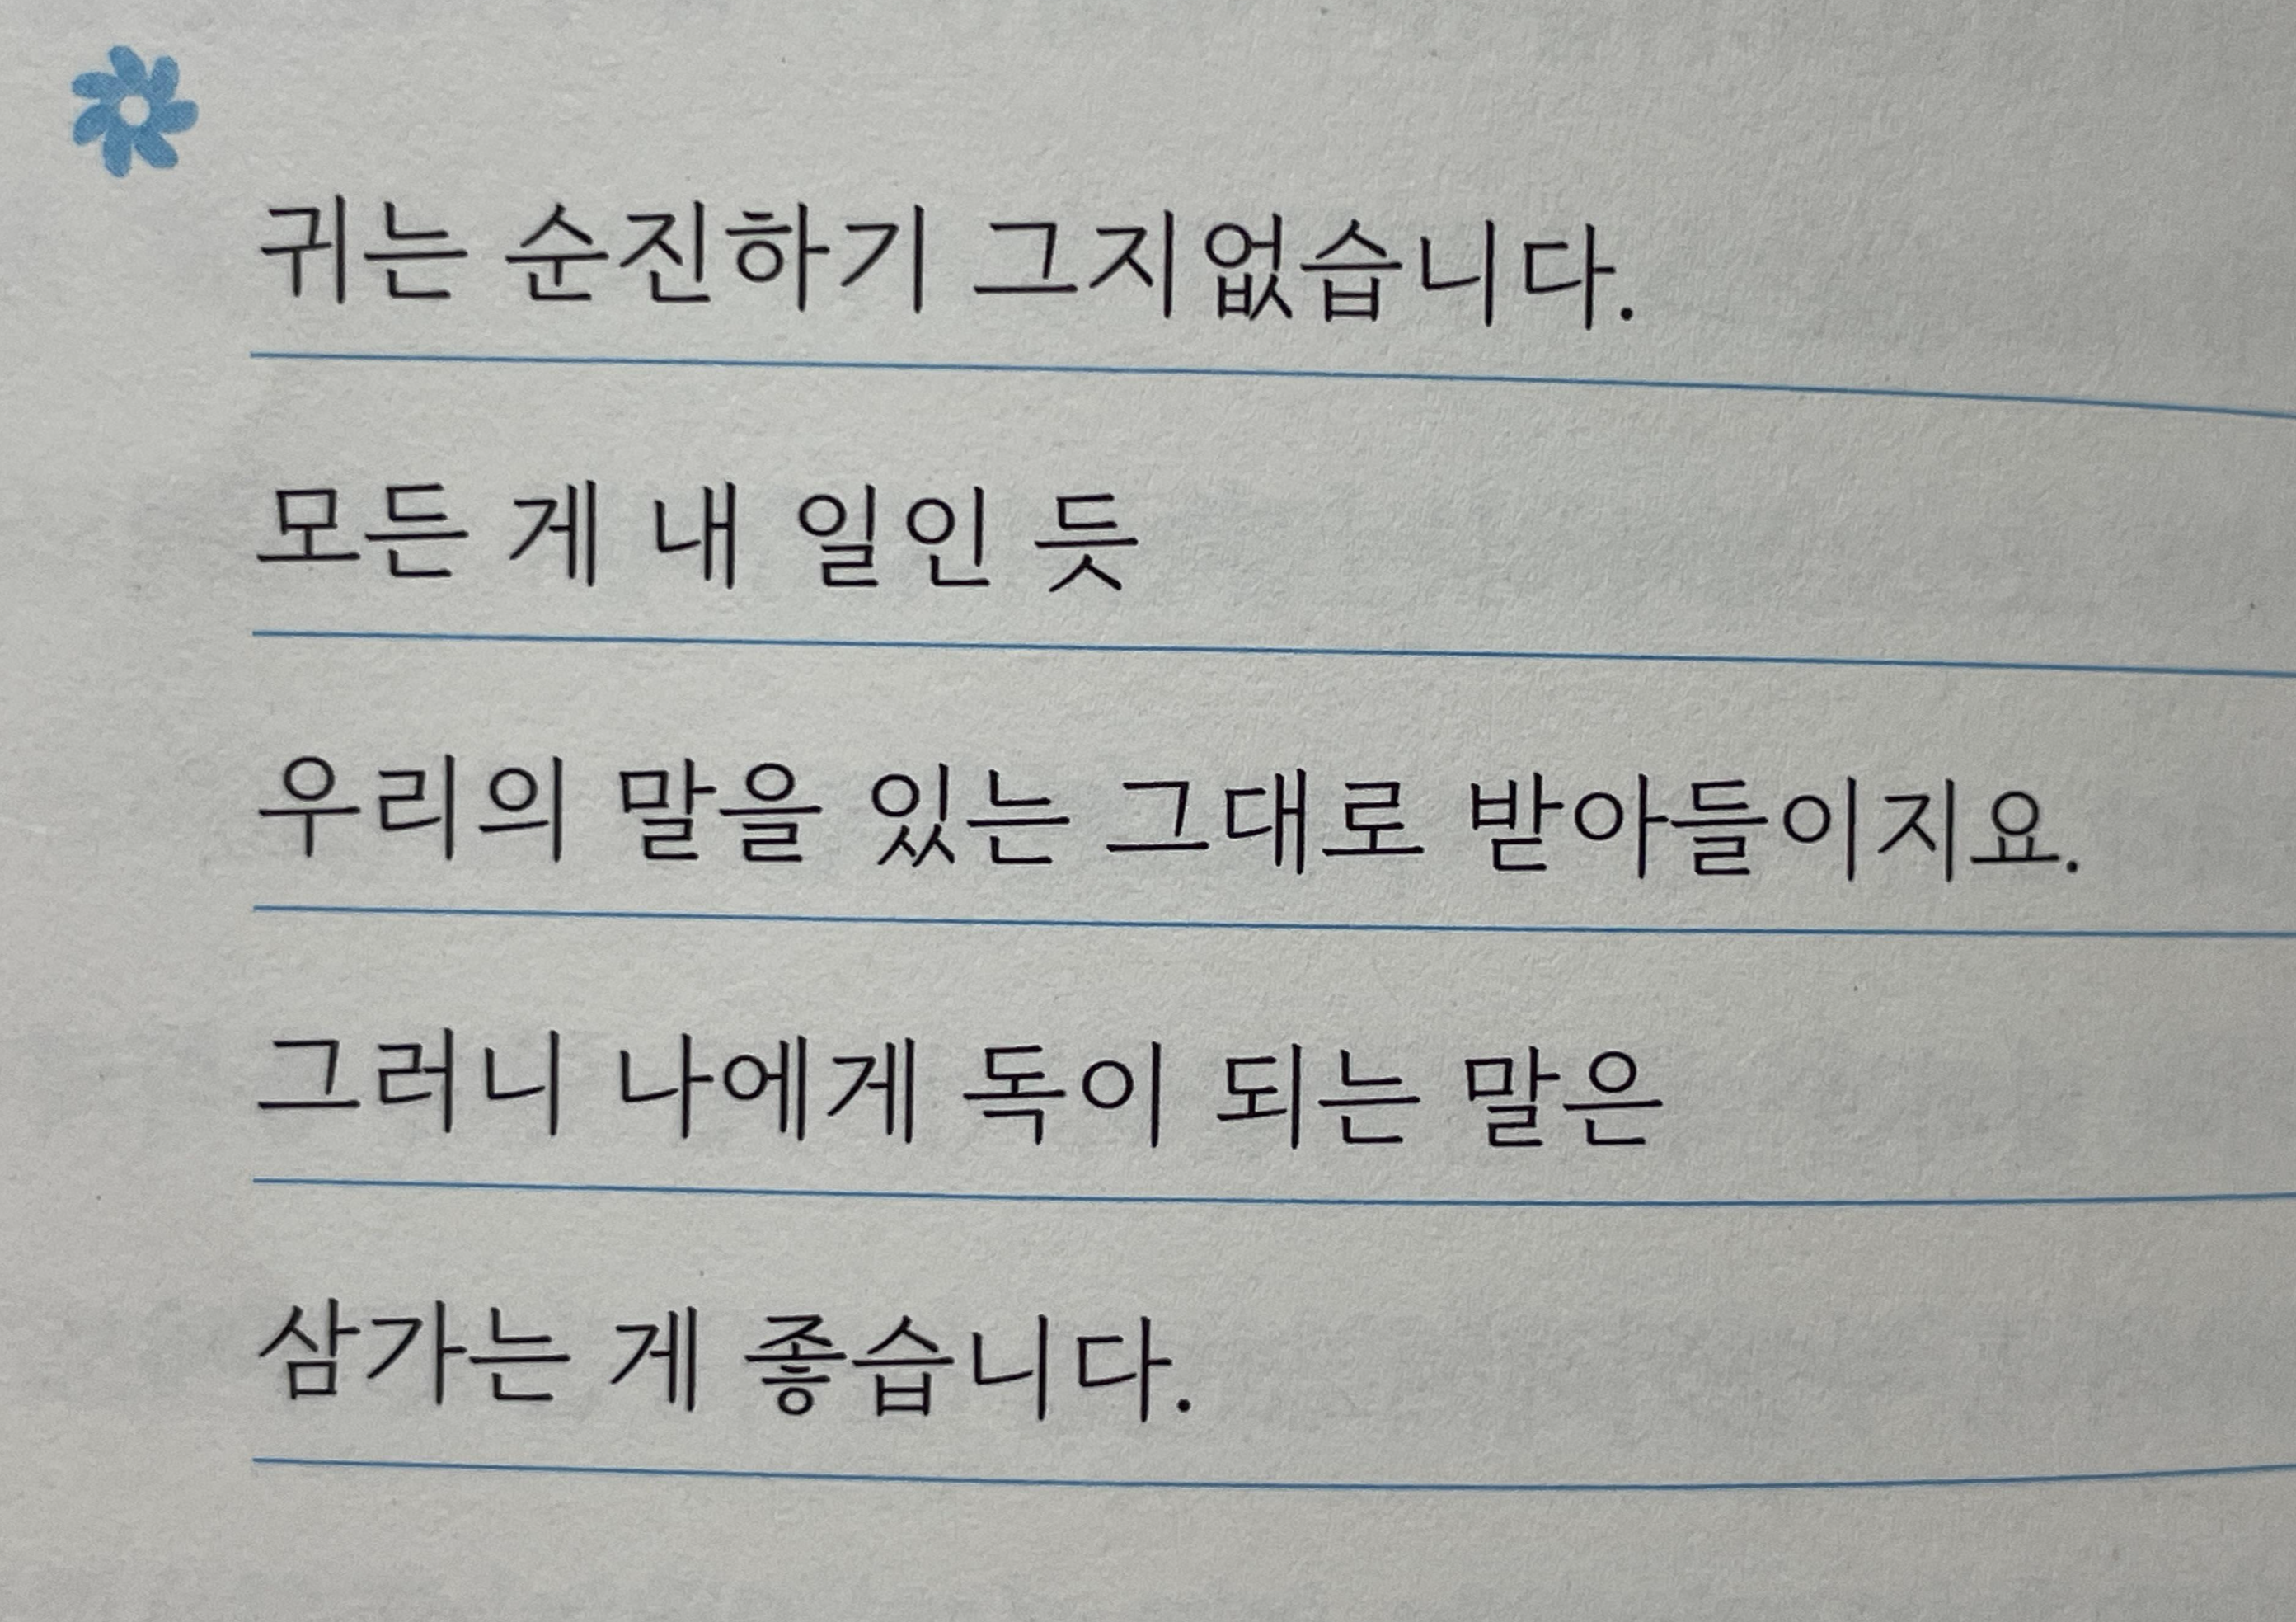 귀는 순진하기 그지없습니다.
모든 게 내 일인 듯
우리의 말을 있는 그대로 받아들이지요.
그러니 나에게 독이 되는 말은
삼가는 게 좋습니다.